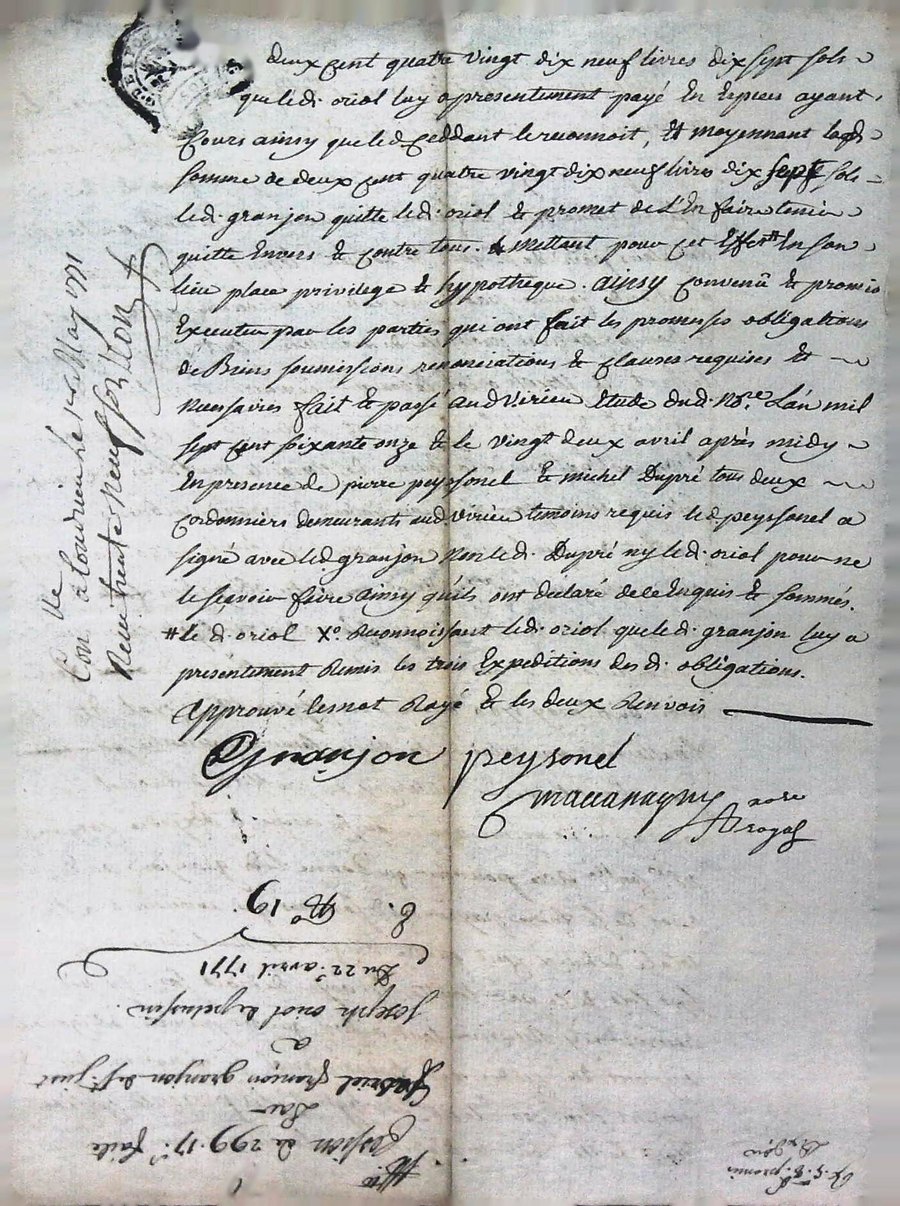 deux cent quatre vingt dix neuf livres dix sept sols
que led. oriol luy a presentement payé En Espèces ayant
Cours ainsy que led. Ceddant le reconnoit, Et moyennant lad.
somme de deux cent quatre vingt dix neuf livres dix sept sols
led. granjon quitte led. oriol & promet de L'En faire tenir
quitte Envers & contre tous. # Mettant pour cet Effect En son
lieu place privilege & hypotheque. ainsy convenû & promis
Executer par les parties qui ont fait les promesses obligations
de Biens soumissions renonciations & clauses requises &
necessaires fait & passé aud. Virieu Etude dud. No.re L'an mil
sept cent soixante onze & le vingt deux avril après midy
En presence de pierre peyssonel & michel Dupré tous deux
Cordonniers demeurants aud. Virieu temoins requis led. peyssonel a
signé avec led. granjon Non led. Dupré ny led. oriol pour ne
le sçavoir faire ainsy qu'ils ont déclaré de ce Enquis & sommés.
# le d. oriol X.o Reconnoissant led. oriol que led. granjon luy a
presentement Remis les trois Expeditions des d. obligations.
Approuvé le mot Rayé & les deux Renvois
Granjon peysonel
no.re
Royal
Con.lle à Condrieu le May 1771
Reçu trente neuf sols
N.o 19
Du 22.e avril 1771
Cession de 299.17.s faite
Par
Gabriel françois granjon de S.t just
a
Joseph oriol de pelussin